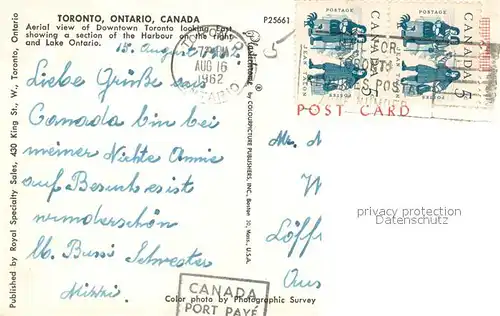 TORONTO, ONTARIO, CANADA
Aerial view of Downtown Toronto looking East
showing a section of the Harbour on the right
and Lake Ontario.
P25661
15. August
AUG 16
1962
ONTARIO
Liebe Grüße aus
Canada bin bei
meiner Nichte Annie
auf Besuch es ist
wunderschön
lb. Bussi Schwester
Mikki.
Published by Royal Specialty Sales, 430 King St., W., Toronto, Ontario
Plastichrome ®
by COLOURPICTURE PUBLISHERS, INC., Boston 30, Mass., U.S.A.
Color photo by Photographic Survey
CANADA
PORT PAYÉ
POSTAGE POSTAGE
CANADA 5
JEAN TALON
POSTES
POST CARD
Löff
privacy protection
Datenschutz